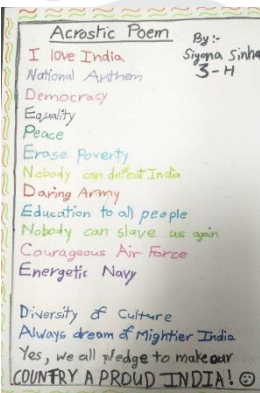 Acrostic Poem
By :-
Siyona Sinha
3-H
I love India
National Anthem
Democracy
Equality
Peace
Erase Poverty
Nobody can defeat India
Daring Army
Education to all people
Nobody can slave us again
Courageous Air Force
Energetic Navy
Diversity of Culture
Always dream of Mightier India
Yes, we all pledge to make our
COUNTRY A PROUD INDIA!